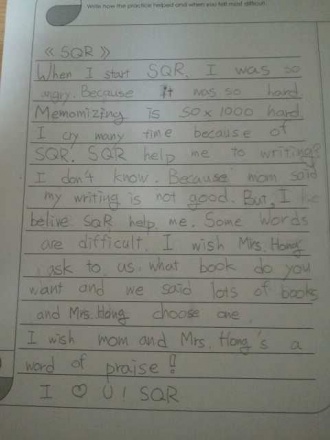 Write how the practice helped and when you felt most difficult.
《SQR》
When I start SQR. I was so
angry. Because it was so hard
Memomizing is 50x1000 hard
I cry many time because of
SQR. SQR help me to writing?
I don't know. Because mom said
my writing is not good. But, I
belive SQR help me. Some words
are difficult. I wish Mrs. Hong
ask to us. what book do you
want and we said lots of books
and Mrs. Hong choose one.
I wish mom and Mrs. Hong's a
word of praise!
I ♡ U! SQR